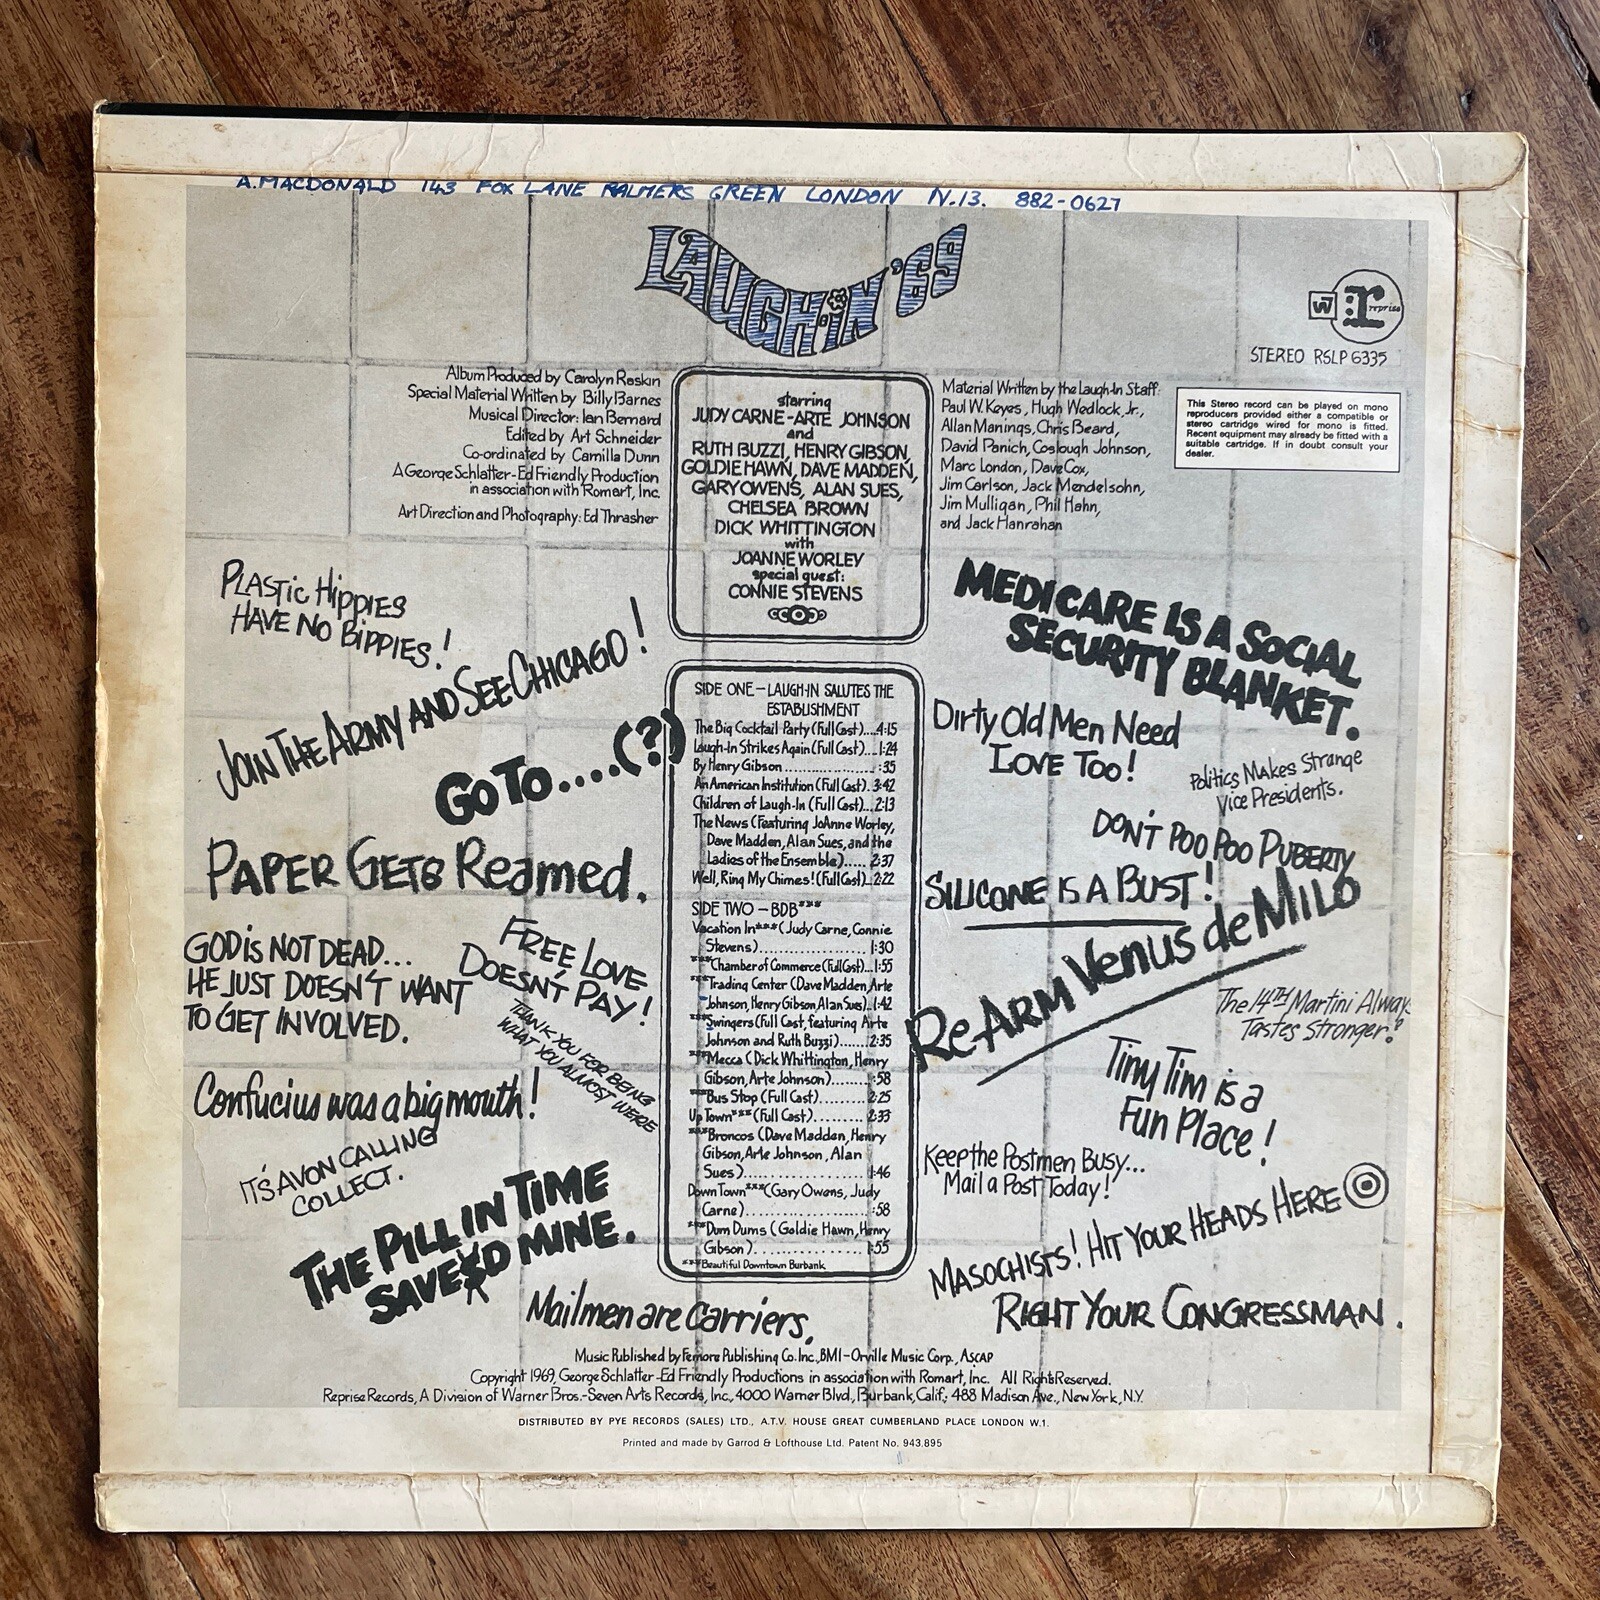 A. MACDONALD 143 FOX LANE PALMERS GREEN LONDON N.13. 882-0627
LAUGH-IN '69
W
r: reprise
STEREO RSLP 6335
Album Produced by Carolyn Raskin
Special Material Written by Billy Barnes
Musical Director: Ian Bernard
Edited by Art Schneider
Co-ordinated by Camilla Dunn
A George Schlatter-Ed Friendly Production
in association with Romart, Inc.
Art Direction and Photography: Ed Thrasher
starring
JUDY CARNE-ARTE JOHNSON
and
RUTH BUZZI, HENRY GIBSON,
GOLDIE HAWN, DAVE MADDEN,
GARY OWENS, ALAN SUES,
CHELSEA BROWN
DICK WHITTINGTON
with
JOANNE WORLEY
special guest:
CONNIE STEVENS
Material Written by the Laugh-In Staff:
Paul W. Keyes, Hugh Wedlock, Jr.,
Allan Manings, Chris Beard,
David Panich, Coslough Johnson,
Marc London, Dave Cox,
Jim Carlson, Jack Mendelsohn,
Jim Mulligan, Phil Hahn,
and Jack Hanrahan
This Stereo record can be played on mono
reproducers provided either a compatible or
stereo cartridge wired for mono is fitted.
Recent equipment may already be fitted with a
suitable cartridge. If in doubt consult your
dealer.
PLASTIC HIPPIES
HAVE NO BIPPIES!
JOIN THE ARMY AND SEE CHICAGO!
GO TO....(?)
PAPER GETS Reamed.
GOD iS NOT DEAD...
HE JUST DOESN'T WANT
TO GET INVOLVED.
FREE LOVE
DOESN'T PAY!
THANK YOU FOR BEING
WHAT YOU ALMOST WERE
Confucius was a big mouth!
IT'S AVON CALLING
COLLECT.
THE PILL IN TIME
SAVESD MINE.
Mailmen are carriers.
SIDE ONE - LAUGH-IN SALUTES THE
ESTABLISHMENT
The Big Cocktail Party (Full Cast)....4:15
Laugh-In Strikes Again (Full Cast)...1:24
By Henry Gibson.....................:35
An American Institution (Full Cast). 3:42
Children of Laugh-In (Full Cast)...2:13
The News (Featuring JoAnne Worley,
Dave Madden, Alan Sues, and the
Ladies of the Ensemble)..... 2:37
Well, Ring My Chimes! (Full Cast)..2:22
SIDE TWO - BDB***
Vacation In*** (Judy Carne, Connie
Stevens)....................1:30
***Chamber of Commerce (Full Cast)...1:55
***Trading Center (Dave Madden, Arte
Johnson, Henry Gibson, Alan Sues). 1:42
***Swingers (Full Cast, featuring Arte
Johnson and Ruth Buzzi).......2:35
***Mecca (Dick Whittington, Henry
Gibson, Arte Johnson).........:58
***Bus Stop (Full Cast)..........2:25
Up Town*** (Full Cast)..........2:33
***Broncos (Dave Madden, Henry
Gibson, Arte Johnson, Alan
Sues)......................1:46
Down Town*** (Gary Owens, Judy
Carne).....................:58
***Dum Dums (Goldie Hawn, Henry
Gibson)...................1:55
***Beautiful Downtown Burbank
MEDICARE IS A SOCIAL
SECURITY BLANKET.
Dirty Old Men Need
LOVE TOO!
Politics Makes Strange
Vice Presidents.
DON'T POO POO PUBERTY
SILICONE IS A BUST!
Re-ARM Venus de MILO
The 14TH Martini Always
Tastes Stronger?
Tiny Tim is a
Fun Place!
Keep the Postmen Busy...
Mail a Post Today!
MASOCHISTS! HIT YOUR HEADS HERE
RIGHT YOUR CONGRESSMAN.
Music Published by Femore Publishing Co. Inc., BMI - Orville Music Corp., ASCAP
Copyright 1969, George Schlatter-Ed Friendly Productions in association with Romart, Inc. All Rights Reserved.
Reprise Records, A Division of Warner Bros.-Seven Arts Records, Inc., 4000 Warner Blvd., Burbank, Calif.; 488 Madison Ave., New York, N.Y.
DISTRIBUTED BY PYE RECORDS (SALES) LTD., A.T.V. HOUSE GREAT CUMBERLAND PLACE LONDON W.1.
Printed and made by Garrod & Lofthouse Ltd. Patent No. 943,895